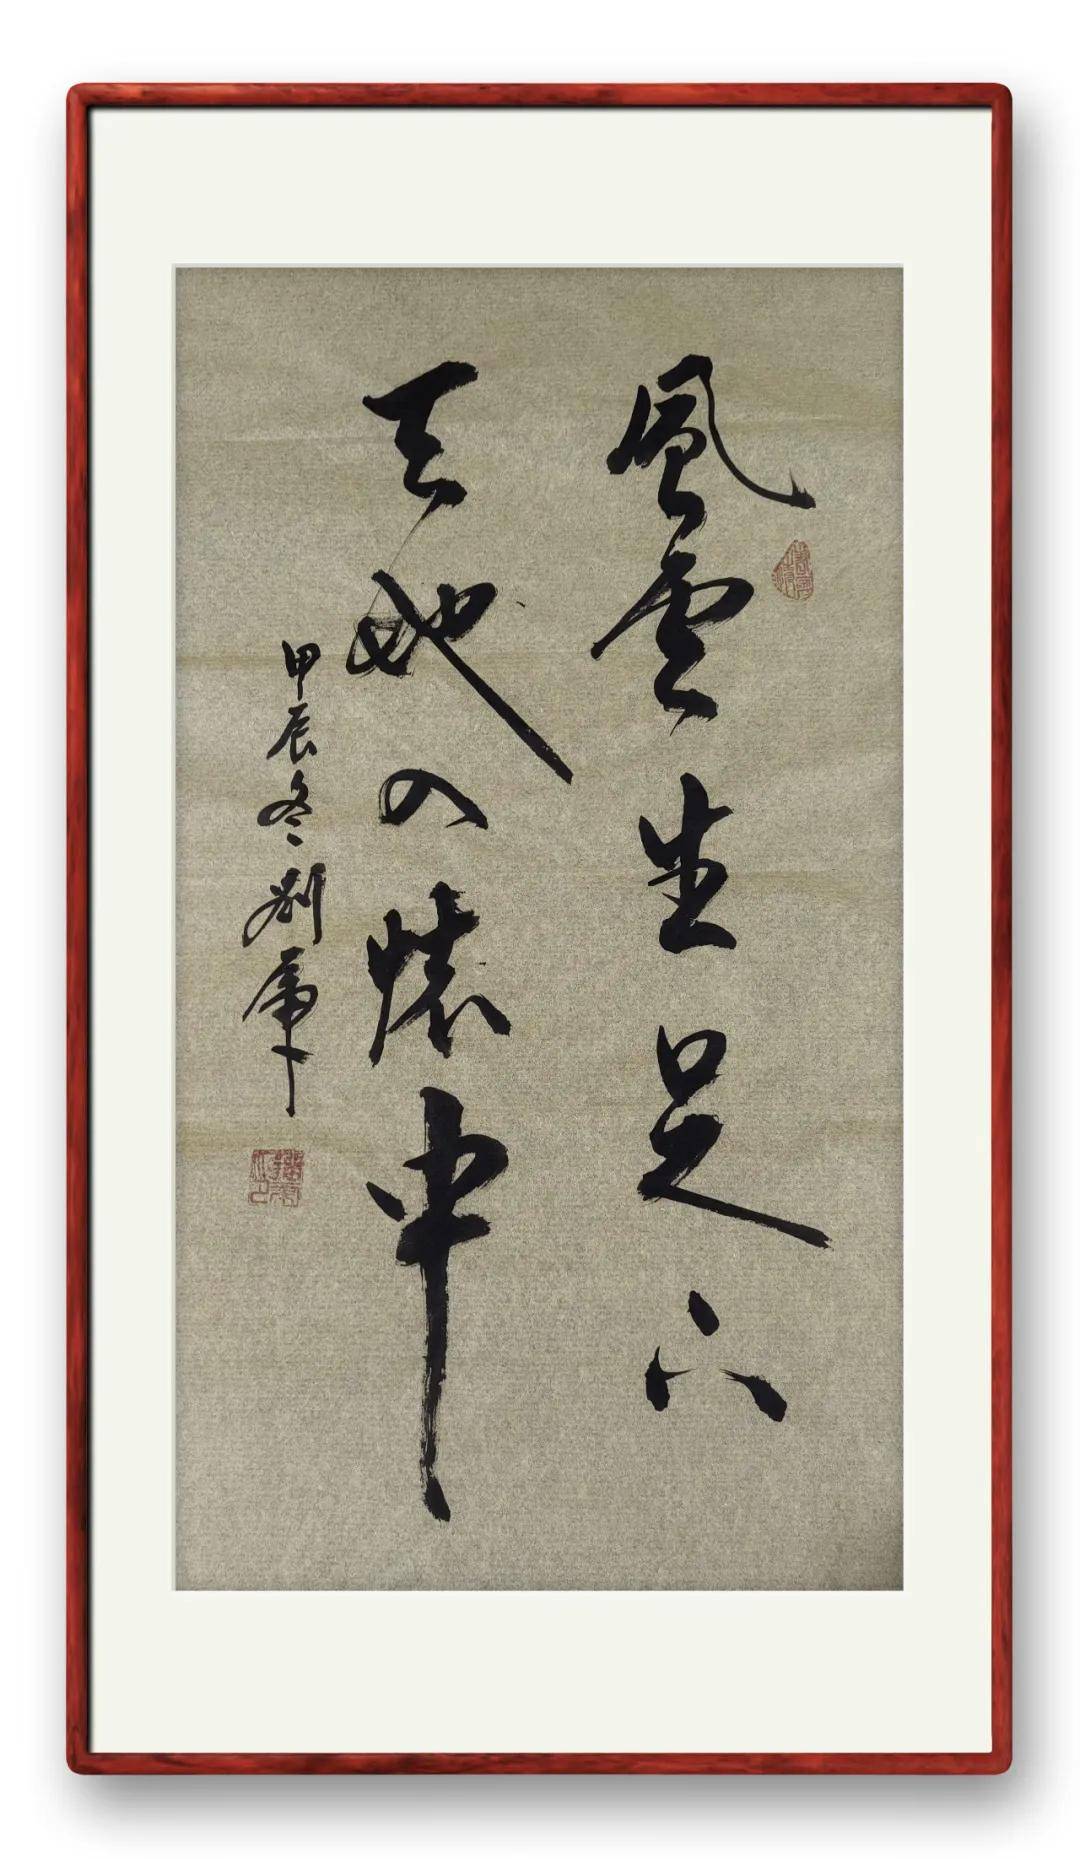 風雲生足下
天地入懷中
甲辰冬劉軍